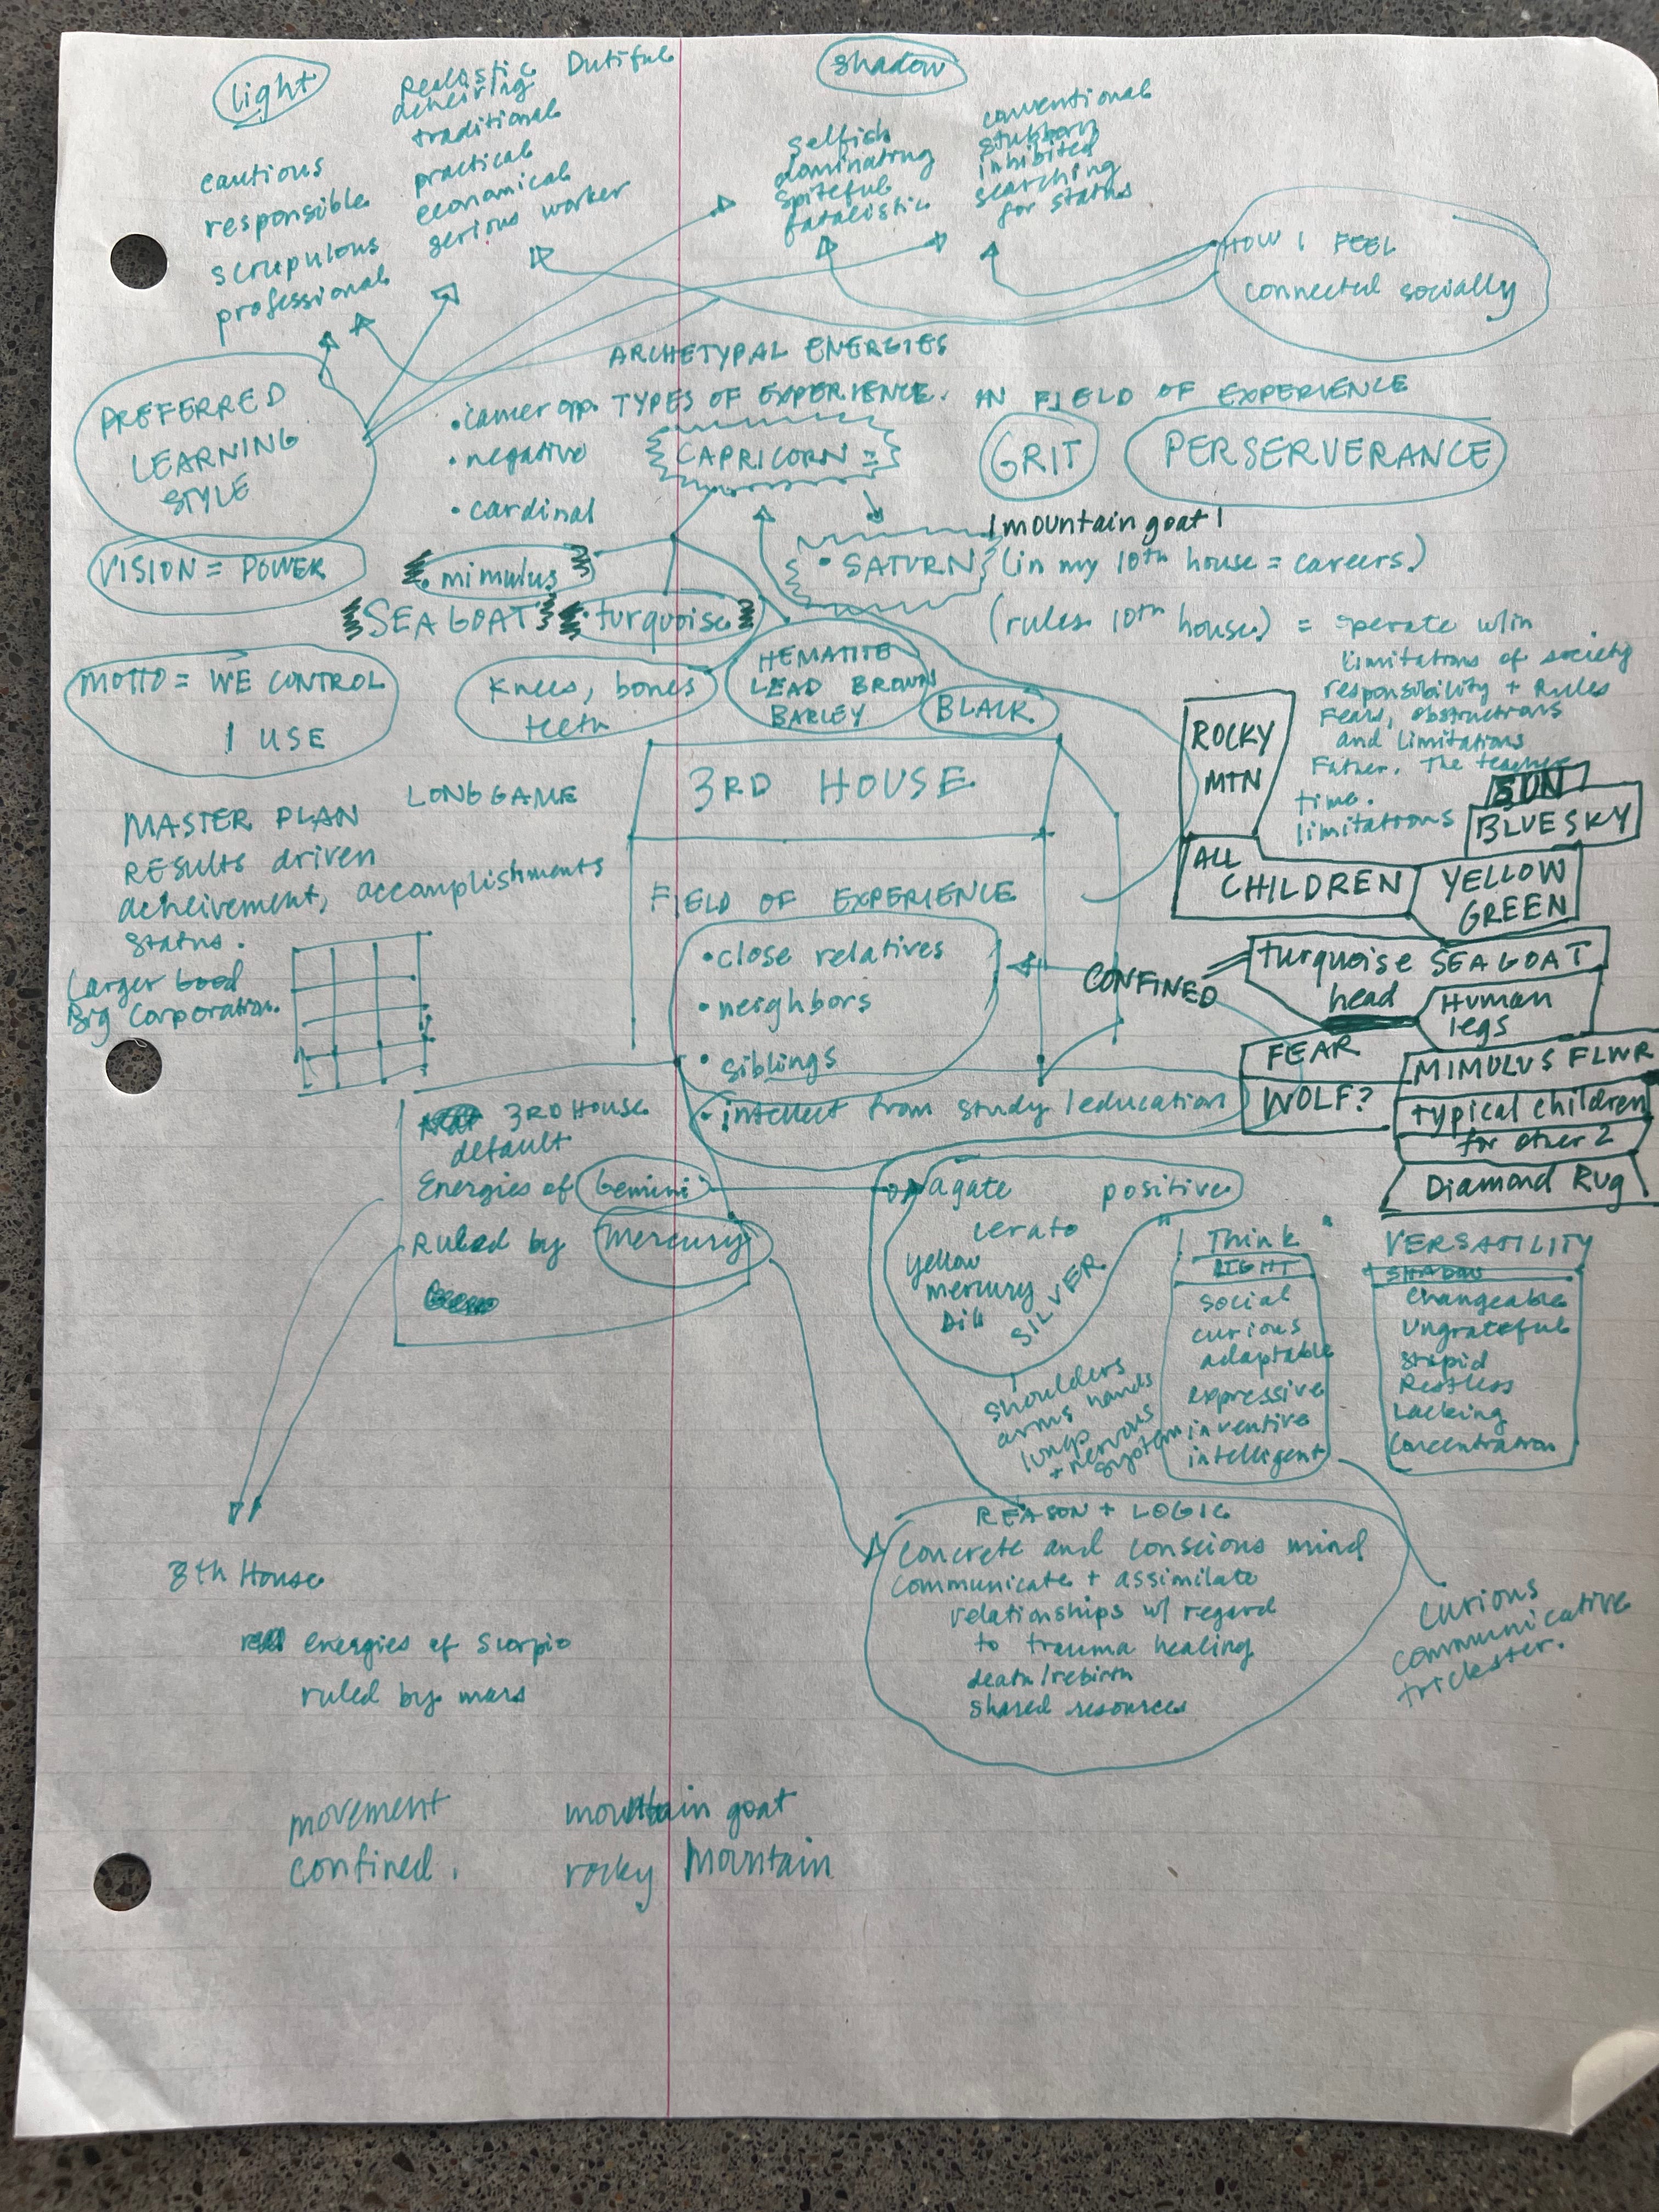 light
Realistic Dutiful
acheiving
traditional
practical
economical
serious worker
cautious
responsible
scrupulous
professional
shadow
selfish
dominating
spiteful
fatalistic
conventional
stubborn
inhibited
searching
for status
HOW I FEEL
connected socially
PREFERRED
LEARNING
STYLE
ARCHETYPAL ENERGIES
TYPES OF EXPERIENCE. IN FIELD OF EXPERIENCE
• cancer opp.
• negative
• cardinal
CAPRICORN =
GRIT
PERSERVERANCE
VISION = POWER
• mimulus
SEA GOAT
• turquoise
mountain goat
• SATURN (in my 10th house = careers.)
(rules 10th house.) = operate w/in
limitations of society
responsibility + Rules
Fears, obstructions
and limitations
Father. The teacher
time.
limitations
MOTTO = WE CONTROL
I USE
Knees, bones
teeth
HEMATITE
LEAD BROWN
BARLEY
BLACK
3RD HOUSE
FIELD OF EXPERIENCE
• close relatives
• neighbors
• siblings
• intellect from study/education
LONG GAME
MASTER PLAN
RESults driven
acheivement, accomplishments
status.
Larger Good
Big Corporation.
ROCKY
MTN
SUN
BLUE SKY
ALL
CHILDREN
YELLOW
GREEN
CONFINED
turquoise SEA GOAT
head
Human
legs
FEAR
WOLF?
MIMULUS FLWR
typical children
for other 2
Diamond Rug
3RD HOUSE
default
Energies of Gemini
Ruled by Mercury
agate positive
cerato
yellow
mercury
Dill
SILVER
shoulders
arms hands
lungs
+ nervous
system
"I Think"
LIGHT
social
curious
adaptable
expressive
inventive
intelligent
VERSATILITY
SHADOW
Changeable
Ungrateful
Stupid
Restless
Lacking
Concentration
REASON + LOGIC
concrete and conscious mind
communicate + assimilate
relationships w/ regard
to trauma healing
death/rebirth
shared resources
curious
communicative
trickster.
8th House
energies of Scorpio
ruled by mars
movement
confined.
mountain goat
rocky Mountain